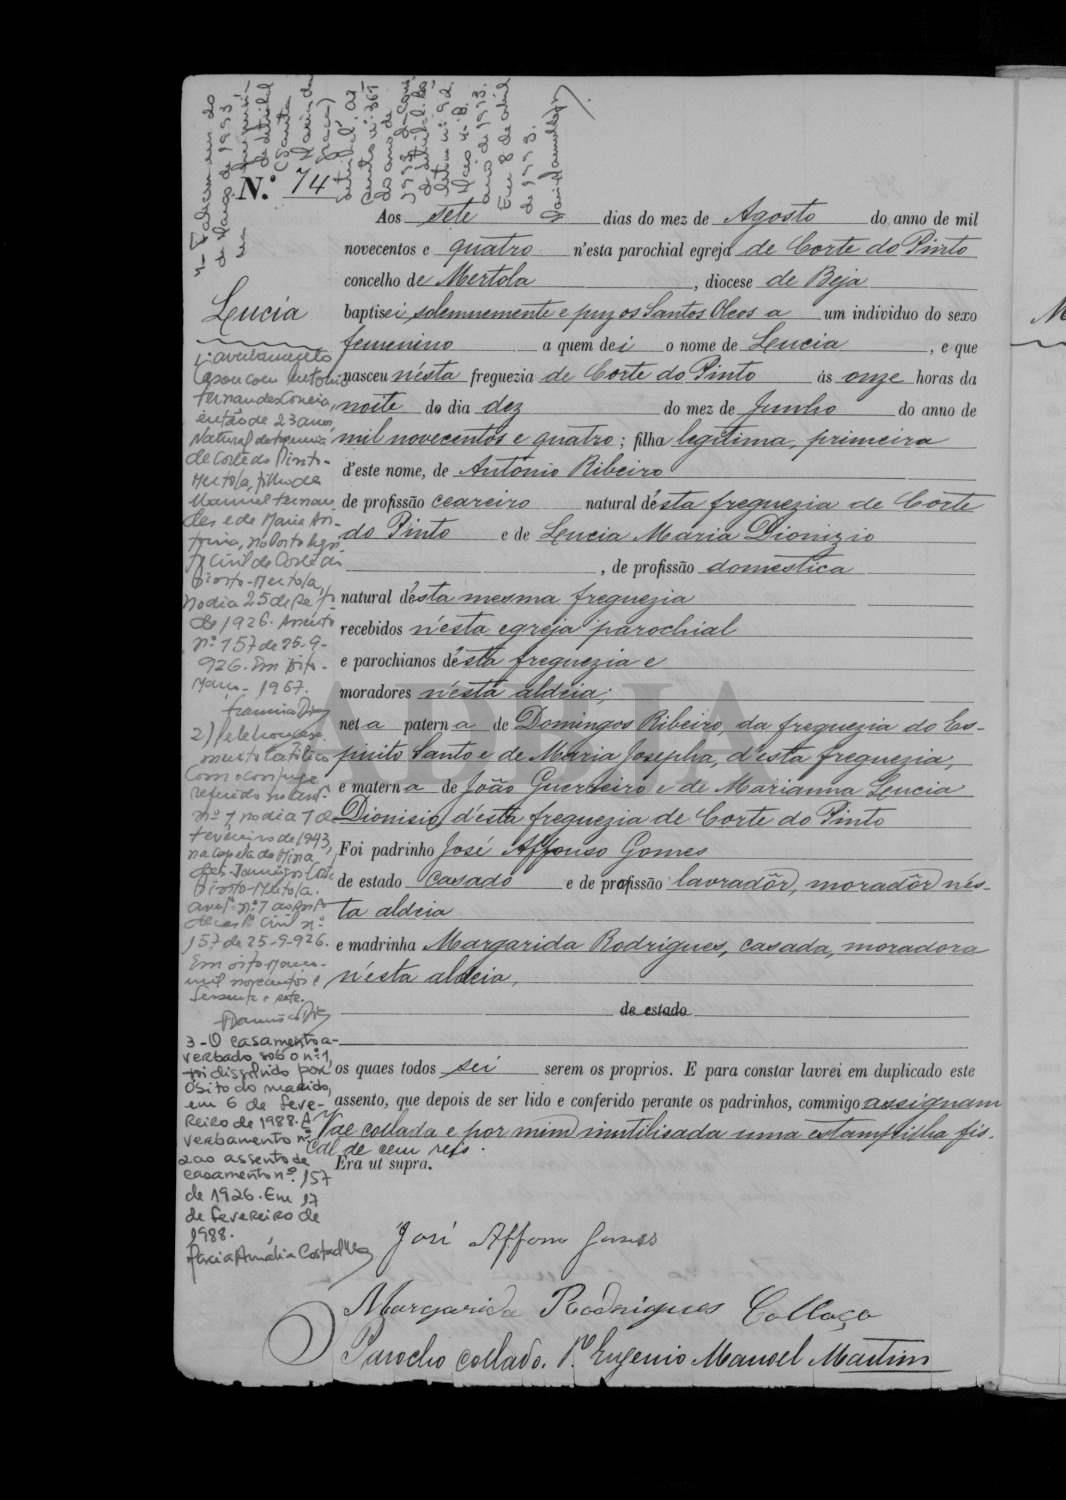 4- Faleceu em do
de Março de 1993
N.º 74
Aos sete dias do mez de Agosto do anno de mil
novecentos e quatro n'esta parochial egreja de Corte do Pinto
concelho de Mertola, diocese de Beja
baptisei solemnemente e puz os Santos Oleos a um individuo do sexo
femenino a quem dei o nome de Lucia, e que
nasceu n'esta freguezia de Corte do Pinto ás onze horas da
noite do dia dez do mez de Junho do anno de
mil novecentos e quatro; filha legitima, primeira
d'este nome, de Antonio Ribeiro
de profissão ceareiro natural d'esta freguezia de Corte
do Pinto e de Lucia Maria Dionizio
, de profissão domestica
natural d'esta mesma freguezia
recebidos n'esta egreja parochial
e parochianos d'esta freguezia e
moradores n'esta aldeia;
neta paterna de Domingos Ribeiro, da freguezia do Es-
pirito Santo e de Maria Josepha, d'esta freguezia,
e materna de João Guerreiro e de Marianna Lucia
Dionisio, d'esta freguezia de Corte do Pinto
Foi padrinho José Affonso Gomes
de estado casado e de profissão lavradôr, moradôr n'es-
ta aldeia
e madrinha Margarida Rodrigues, casada, moradora
n'esta aldeia,
de estado
os quaes todos sei serem os proprios. E para constar lavrei em duplicado este
assento, que depois de ser lido e conferido perante os padrinhos, commigo assignam
Vae collada e por mim inutilisada uma estampilha fis-
cal de cem reis.
Era ut supra.
José Affonso Gomes
Margarida Rodrigues Collaço
Parocho collado. P.e Eugenio Manoel Martins
Lucia
1º averbamento
Casou com Antonio
Fernandes Correia,
então de 23 anos,
Natural da freguesia
de Corte do Pinto-
Mertola, filho de
Manuel Fernan-
des e de Maria An-
tonia, no Posto Regis
to Civil de Corte do
Pinto-Mertola,
no dia 25 de Setº
de 1926. Assento
nº 157 de 25-9-
926. Em oito-
Março-1967.
2) Celebrou casa
mento Católico
com o conjuge
referido no avt.
nº 1, no dia 7 de
Fevereiro de 1943,
na capela da Mina
de S. Domingos Corte
Pinto-Mertola.
157 de 25-9-926.
Em oito-Março-
mil novecentos e
sessenta e sete.
3-O casamento a-
verbado sob o nº 1,
foi dissolvido por
óbito do marido,
em 6 de Feve-
reiro de 1988. A
verbamento nº
2 ao assento de
casamento nº 157
de 1926. Em 17
de Fevereiro de
1988.
ADBJA